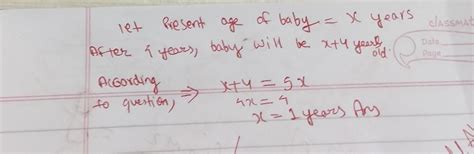 let Present age of baby = x years
After 4 years, baby will be x+4 years old.
According to question, ⇒ x+4 = 5x
4x = 4
x = 1 years Ans
CLASSMA
Date
Page